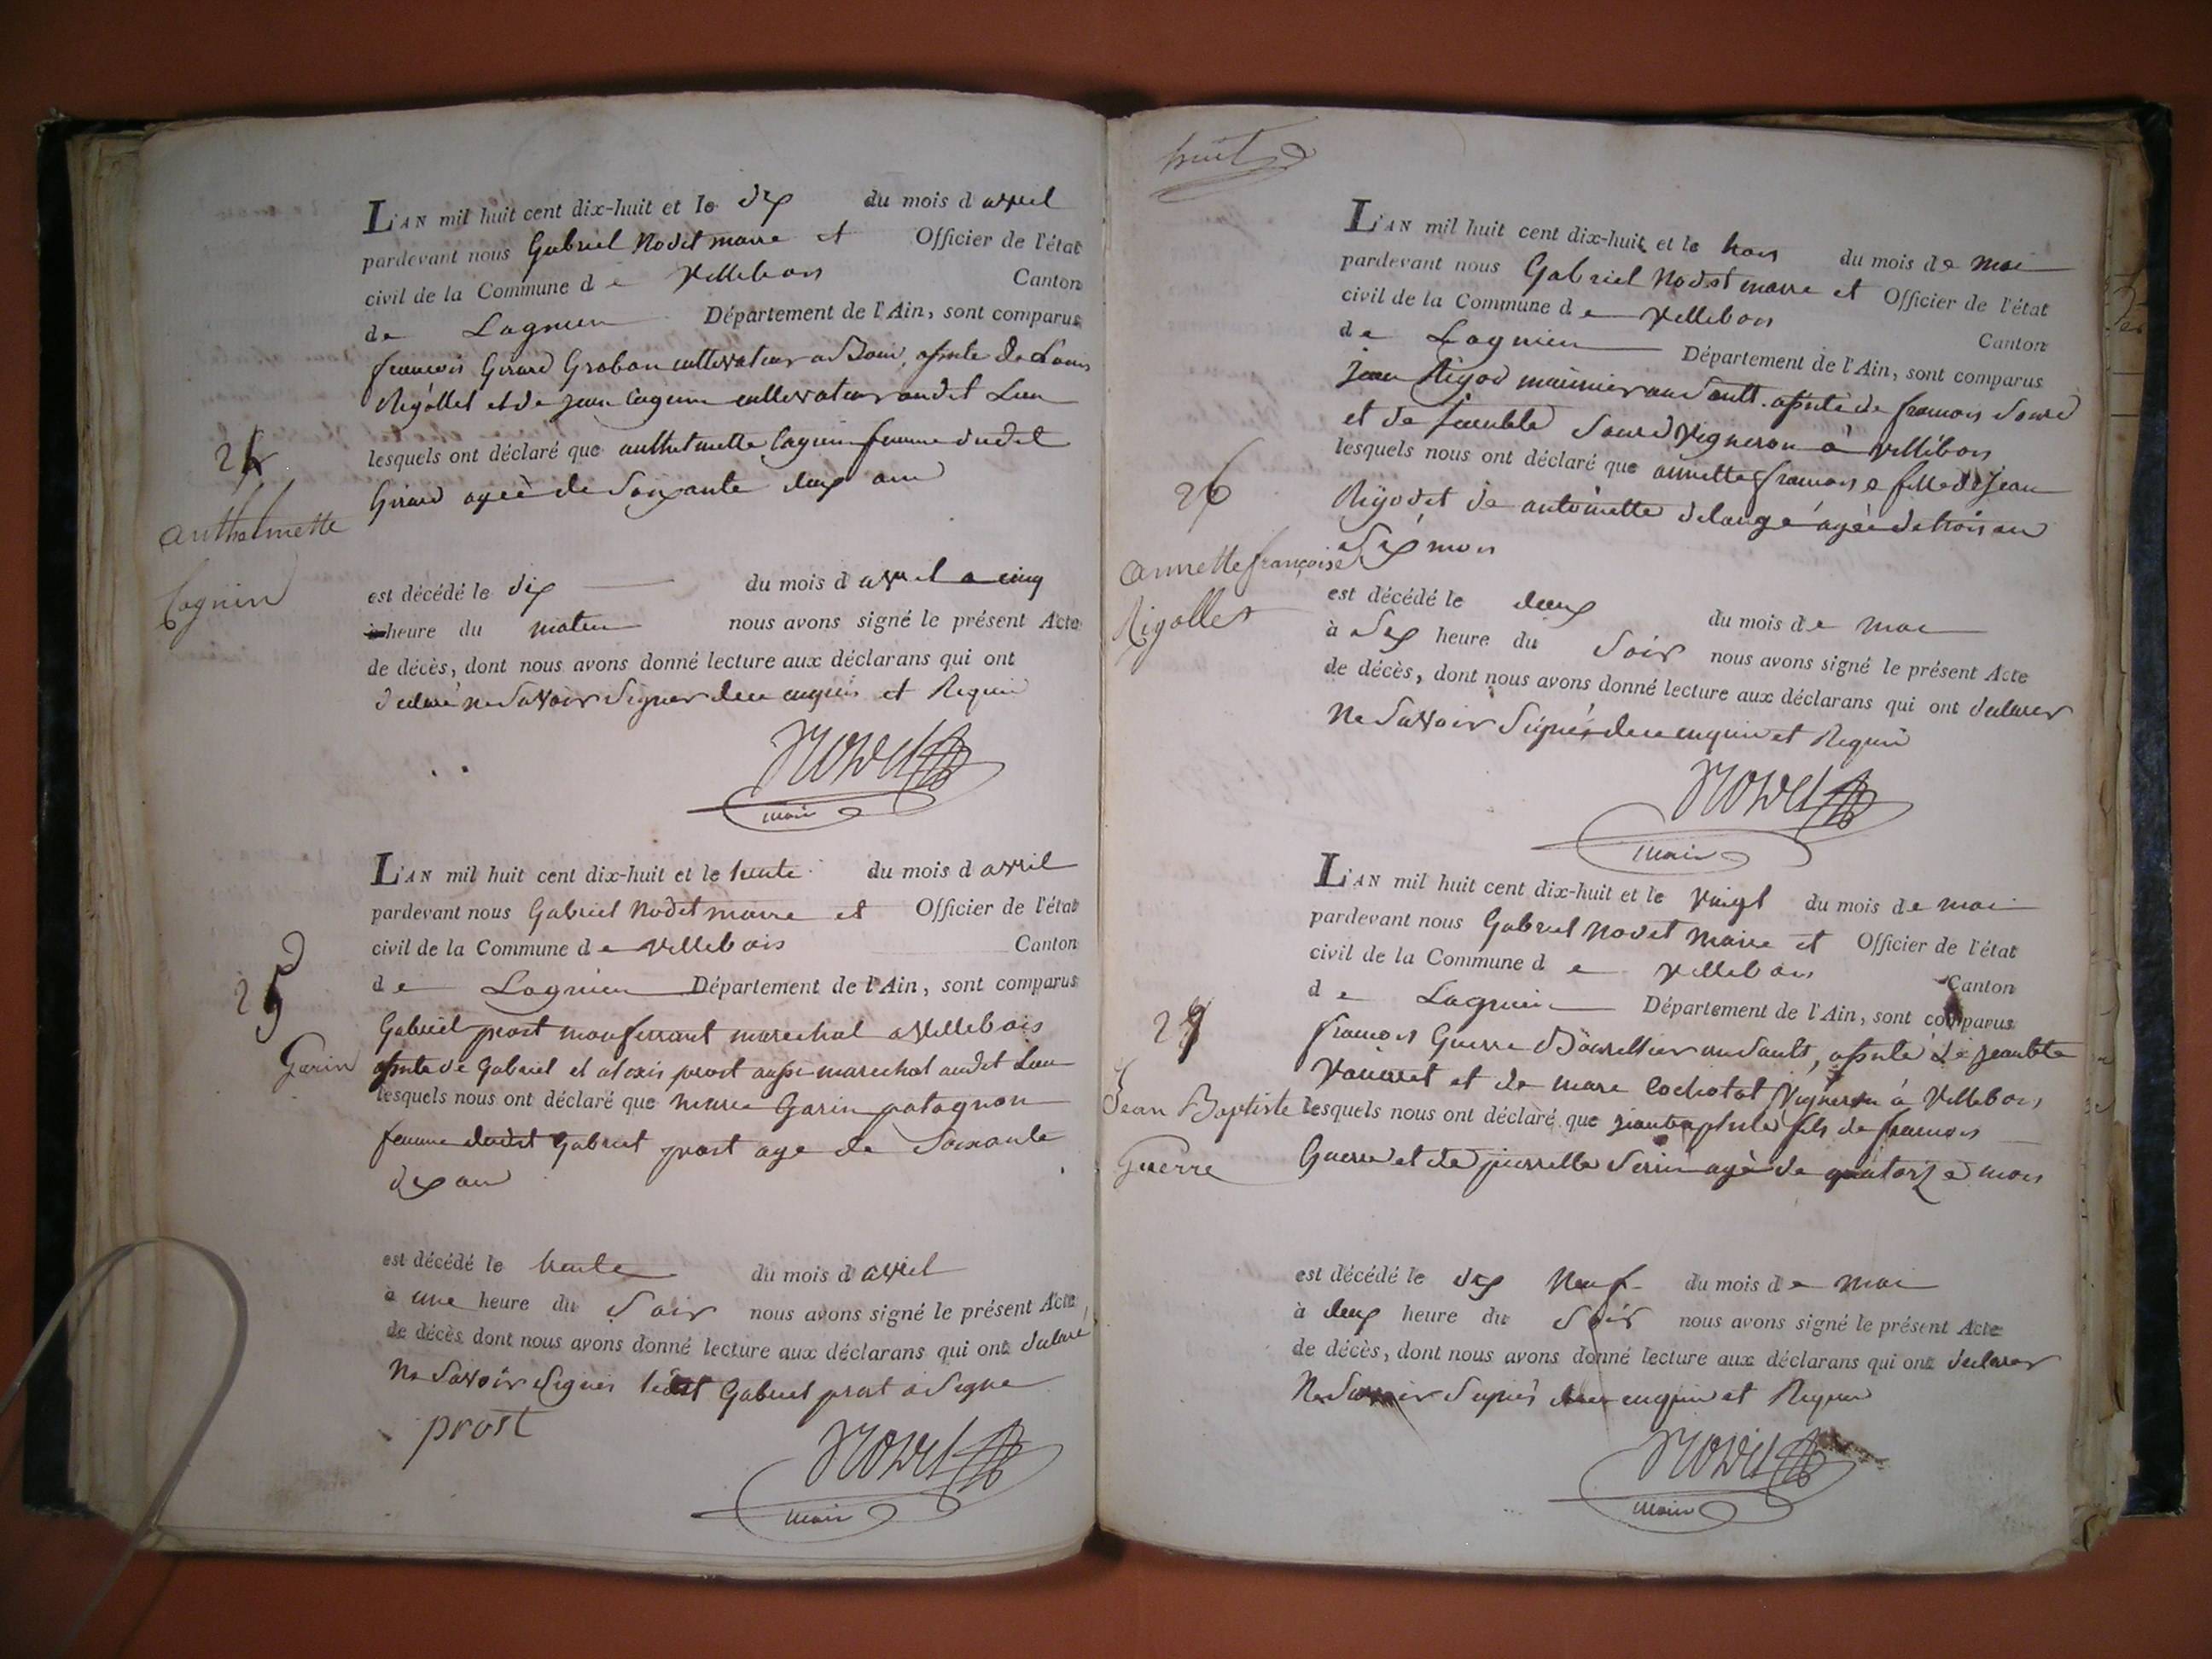 L'AN mil huit cent dix-huit et le dix du mois d avril
pardevant nous Gabriel Nodet maire et Officier de l'état
civil de la Commune d e Villebois Canton
de Lagnieu Département de l'Ain, sont comparus
francois Girard Grobon cultivateur a Bouis, assisté de Louis
Rigollet et de jean Cagnin cultivateur audit Lieu
lesquels ont déclaré que anthelmette Cagnin femme dudit
Girard agée de Soixante deux ans
24
anthelmette
Cagnin
est décédé le dix du mois d avril a cinq
heure du matin nous avons signé le présent Acte
de décès, dont nous avons donné lecture aux déclarans qui ont
declaré ne Savoir Signer de ce enquis et Requis
NODET
maire
L'AN mil huit cent dix-huit et le trente du mois d avril
pardevant nous Gabriel Nodet maire et Officier de l'état
civil de la Commune d e Villebois Canton
d e Lagnieu Département de l'Ain, sont comparus
Gabriel prost monferrant marechal a Villebois
assisté de Gabriel et alexis prost aussi marechal audit Lieu
lesquels nous ont déclaré que marie Garin patagnon
femme dudit Gabriel prost age de Soixante
dix ans
25
Garin
est décédé le trente du mois d avril
à une heure du Soir nous avons signé le présent Acte
de décès dont nous avons donné lecture aux déclarans qui ont declaré
Ne Savoir Signer Gabriel prost a Signe
prost
NODET
maire
huit
L'AN mil huit cent dix-huit et le trois du mois d e mai
pardevant nous Gabriel Nodet maire et Officier de l'état
civil de la Commune d e Villebois Canton
d e Lagnieu Département de l'Ain, sont comparus
jean Rigod maunier au Sault assisté de francois Sourd
et de Sourd Vigneron à Villebois
lesquels nous ont déclaré que annette francoise fille de Jean
Rigod et de antoinette delange agée de trois an
Six mois
26
annette françoise
Rigollet
est décédé le deux du mois d e mai
à Six heure du Soir nous avons signé le présent Acte
de décès, dont nous avons donné lecture aux déclarans qui ont declarer
Ne Savoir Signer de ce enquis et Requis
NODET
maire
L'AN mil huit cent dix-huit et le Vingt du mois d e mai
pardevant nous Gabriel Nodet Maire et Officier de l'état
civil de la Commune d e Villebois Canton
d e Lagnieu Département de l'Ain, sont comparus
francois Guerre Bourellier au Sault, assisté de jeanbte
et de marc cochotat Vigneron à Villebois
lesquels nous ont déclaré que jeanbaptiste fils de francois
Guerre et de pierrette Serin agé de quatorze mois
27
Jean Baptiste
Guerre
est décédé le dix Neuf du mois d e mai
à deux heure du Soir nous avons signé le présent Acte
de décès, dont nous avons donné lecture aux déclarans qui ont declarer
Ne Savoir Signer de ce enquis et Requis
NODET
maire